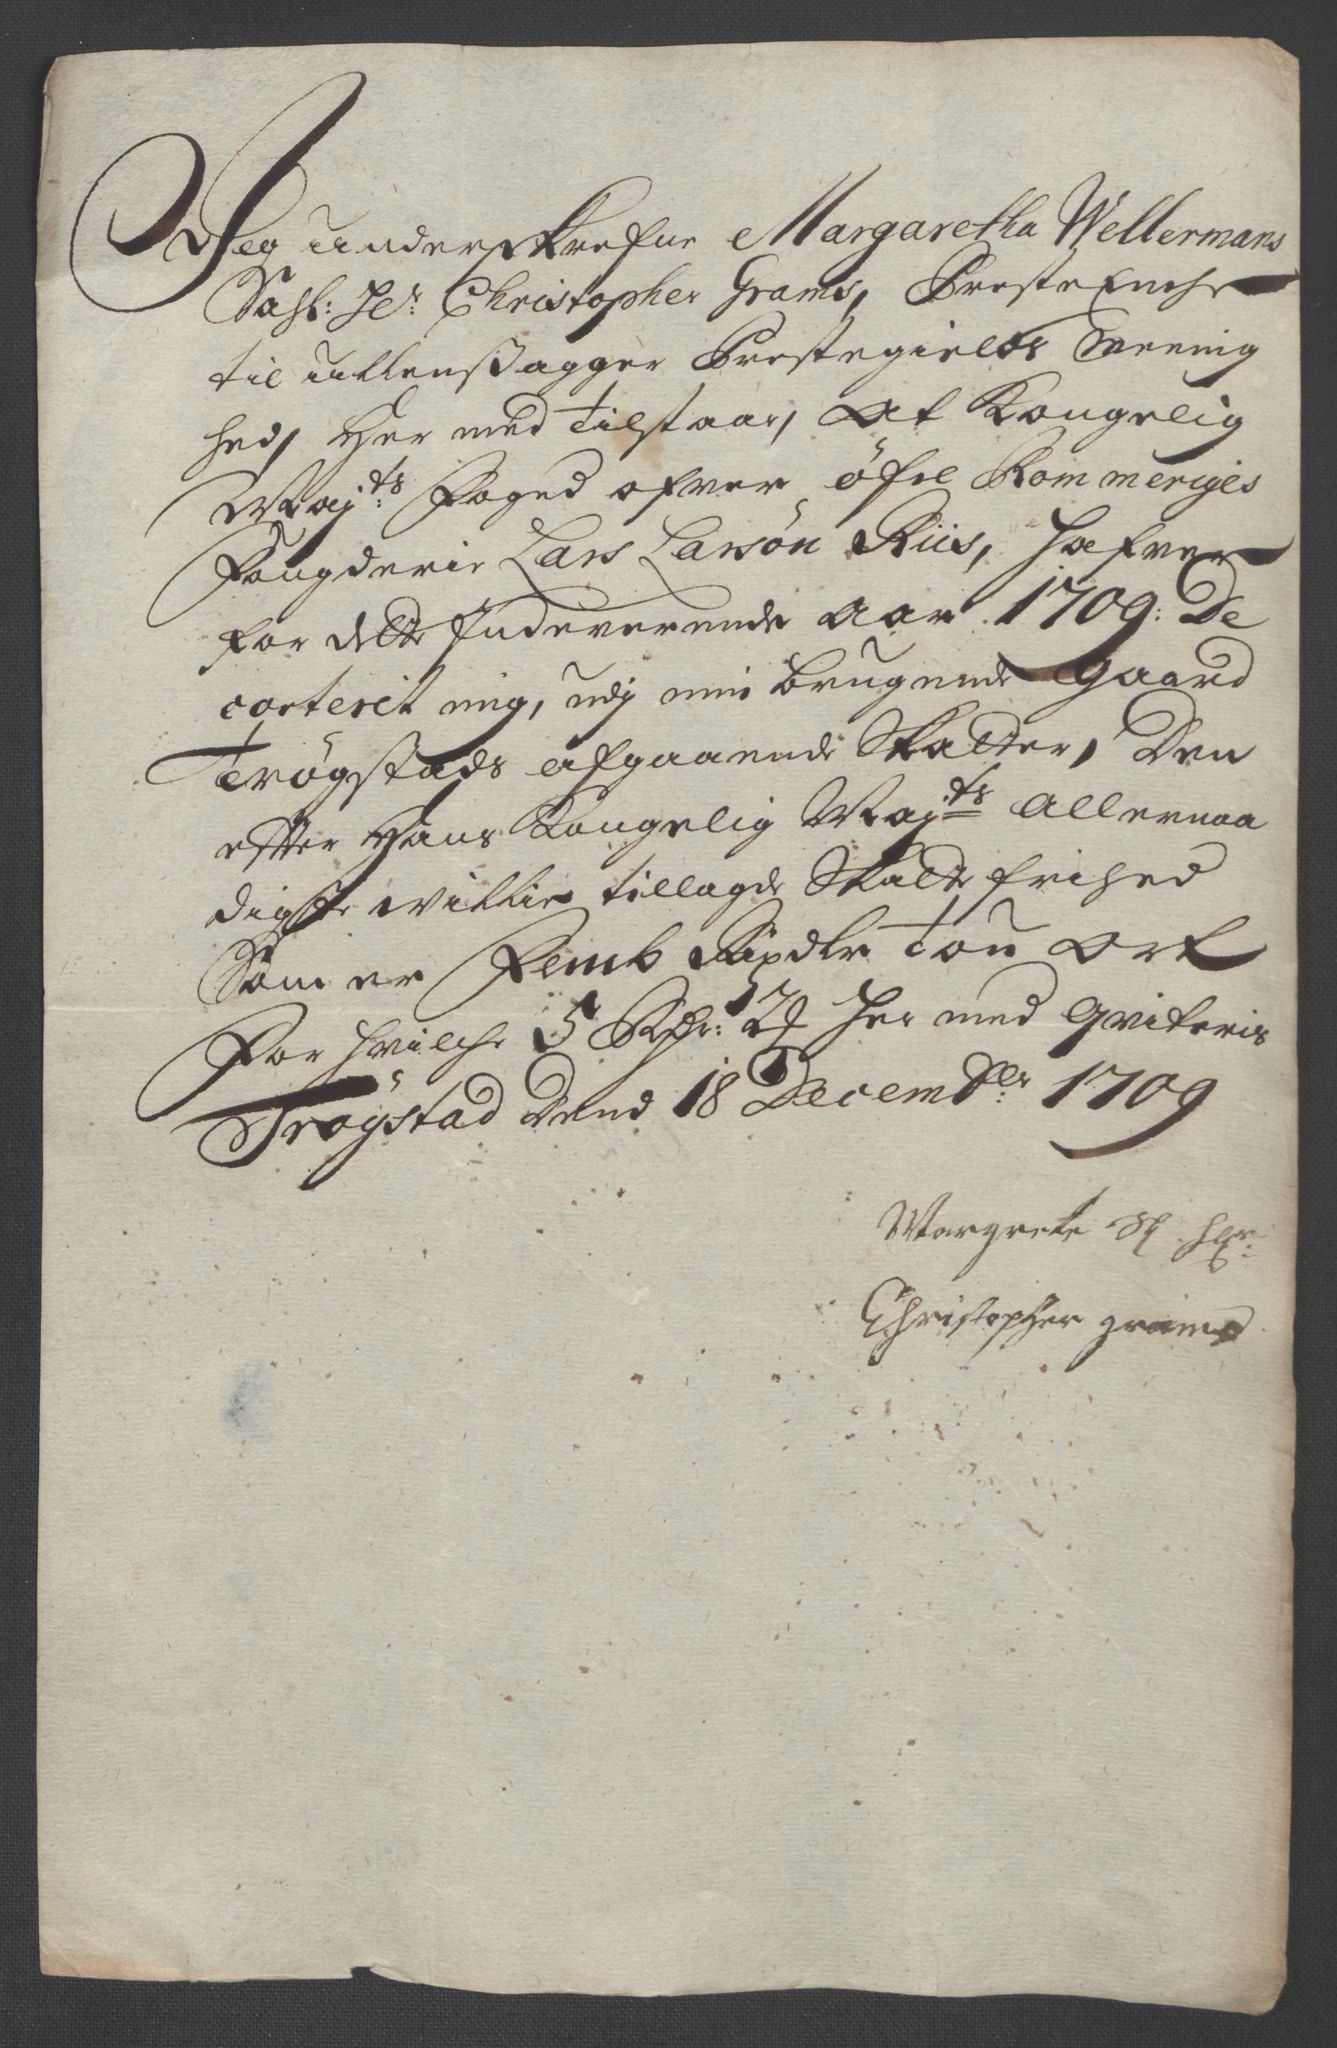 Jeg underskrefne Margaretha Wellermans
Sahl: Hr: Christopher Grams, Preste Enche
til Ullensager Prestegields Meenig
hed, Her med Tilstaar, At Kongelig
Mayts: Foged ofver öfre Rommeriges
Fougderie Lars Larsön Riis, Hafver
for dette Indeverende Aar 1709: De
corterit mig, udj min Brugende Gaard
Trögstads afgaaende Skatter, Den
efter Hans Kongelig Mayts: Allernaa
digste Villie tillagde Skatte frihed
Som er Femb Rixdlr Tou Ort
For hvilche 5 Rdr: 2 Her med Qviteris
Trögstad Dend 18 Decembr: 1709
Margrete Sl Hr:
Christopher grams